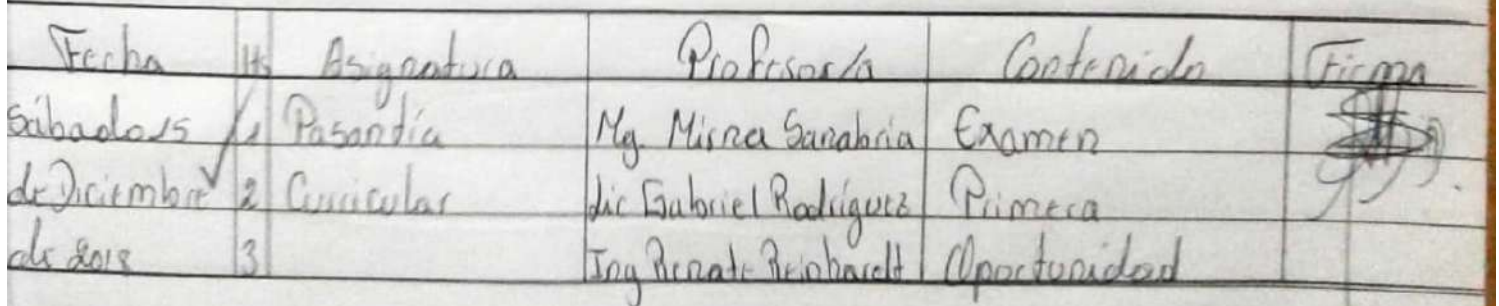 Fecha Hs Asignatura Profesor/a Contenido Firma
Sábado 15 1 Pasantía Mg. Mirna Sanabria Examen
de Diciembre 2 Curricular Lic Gabriel Rodríguez Primera
de 2018 3 Ing Renate Reinhardt Oportunidad